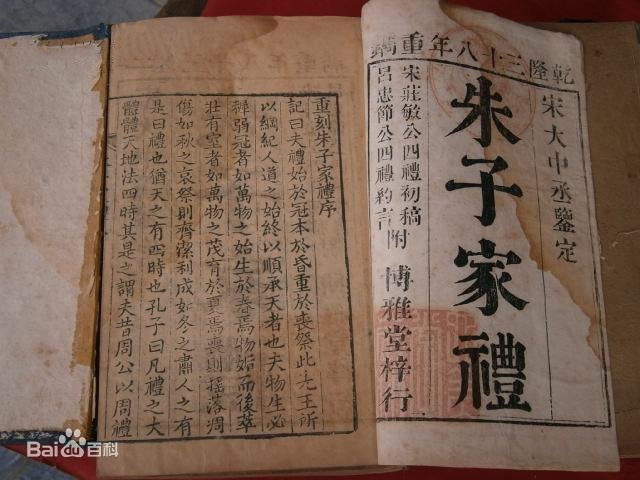 乾隆三十八年重鐫
宋大中丞鑒定
朱子家禮
宋莊敏公四禮初稿
呂忠節公四禮約言附
博雅堂梓行
重刻朱子家禮序
記曰夫禮始於冠本於昏重於喪祭此先王所
以綱紀人道之始終以順承天者也夫物生必
穉弱冠者如萬物之始生於春焉物姤而後萃
壯有室者如萬物之茂育於夏焉喪則搖落凋
傷如秋之哀祭則齊潔利成如冬之肅人之有
是曰禮也猶天之有四時也孔子曰凡禮之大
體體天地法四時其是之謂夫昔周公以周禮
Bai百科